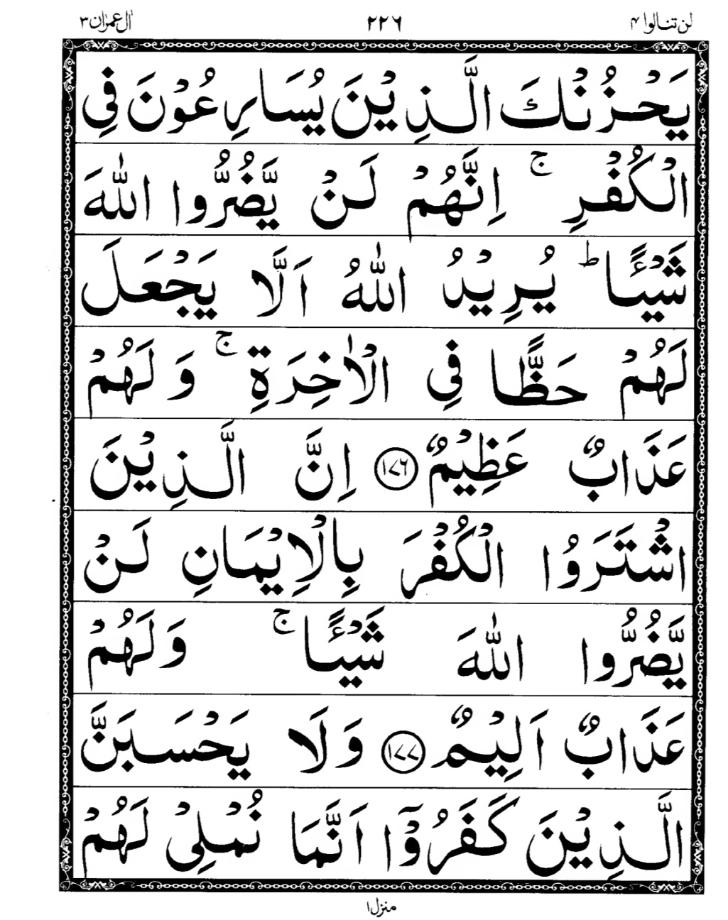 لن تنالوا ۴ ۲۲۶ اٰل عمرٰن ۳
يَحْزُنْكَ الَّذِيْنَ يُسَارِعُوْنَ فِي
الْكُفْرِ ۚ اِنَّهُمْ لَنْ يَّضُرُّوا اللّٰهَ
شَيْـًٔا ؕ يُرِيْدُ اللّٰهُ اَلَّا يَجْعَلَ
لَهُمْ حَظًّا فِي الْاٰخِرَةِ ۚ وَلَهُمْ
عَذَابٌ عَظِيْمٌ ۝۱۷۶ اِنَّ الَّذِيْنَ
اشْتَرَوُا الْكُفْرَ بِالْاِيْمَانِ لَنْ
يَّضُرُّوا اللّٰهَ شَيْـًٔا ۚ وَلَهُمْ
عَذَابٌ اَلِيْمٌ ۝۱۷۷ وَلَا يَحْسَبَنَّ
الَّذِيْنَ كَفَرُوْٓا اَنَّمَا نُمْلِيْ لَهُمْ
منزل ۱